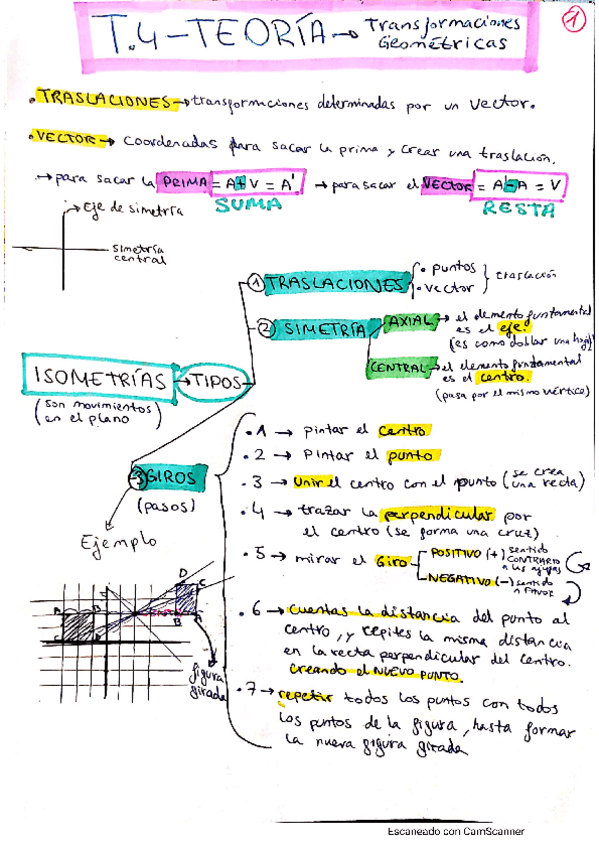 1
T.4-TEORÍA → Transformaciones
Geométricas
. TRASLACIONES → transformaciones determinadas por un vector.
. VECTOR → Coordenadas para sacar la prima y crear una traslación.
→ para sacar la PRIMA = A + V = A' → para sacar el VECTOR = A' - A = V
SUMA RESTA
Eje de simetría
simetría
central
1 TRASLACIONES
. puntos
. vector
traslación
2 SIMETRÍA
AXIAL → el elemento funtamental
es el eje.
(es como doblar una hoja)
CENTRAL → el elemento fundamental
es el centro.
(pasa por el mismo vértice)
ISOMETRÍAS → TIPOS
(son movimientos
en el plano)
3 GIROS
(pasos)
Ejemplo
. 1 → pintar el centro
. 2 → Pintar el punto
. 3 → Unir el centro con el punto (se crea
una recta)
. 4 → trazar la perpendicular por
el centro (se forma una cruz)
. 5 → mirar el Giro
POSITIVO (+) sentido
CONTRARIO
a las agujas
NEGATIVO (-) sentido
a FAVOR
. 6 → cuentas la distancia del punto al
centro, y repites la misma distancia
en la recta perpendicular del centro.
creando el NUEVO PUNTO.
. 7 → repetir todos los puntos con todos
los puntos de la figura, hasta formar
la nueva figura girada
D
C
A
B
B
A
C
figura
girada
Escaneado con CamScanner